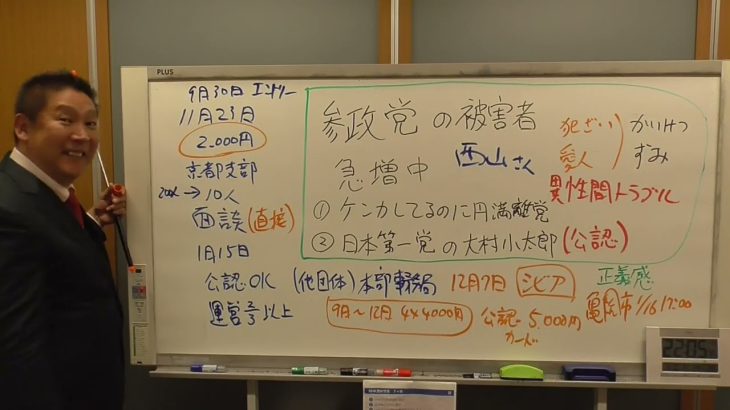 PLUS
9月30日 エントリー
11月23日
2,000円
京都支部
20人→10人
面談(直接)
1月15日
公認OK (他団体)本部事務局 12月7日 シビア
運営 2/3 以上
9月〜12月 4×4000円
公認 5,000円
カード
参政党の被害者
急増中 西山さん
犯ざい
愛人
かいけつ
ずみ
異性間トラブル
① ケンカしてるのに円満離党
② 日本第一党の大村小太郎(公認)
正義感
亀岡市 1/16 17:00
22:05